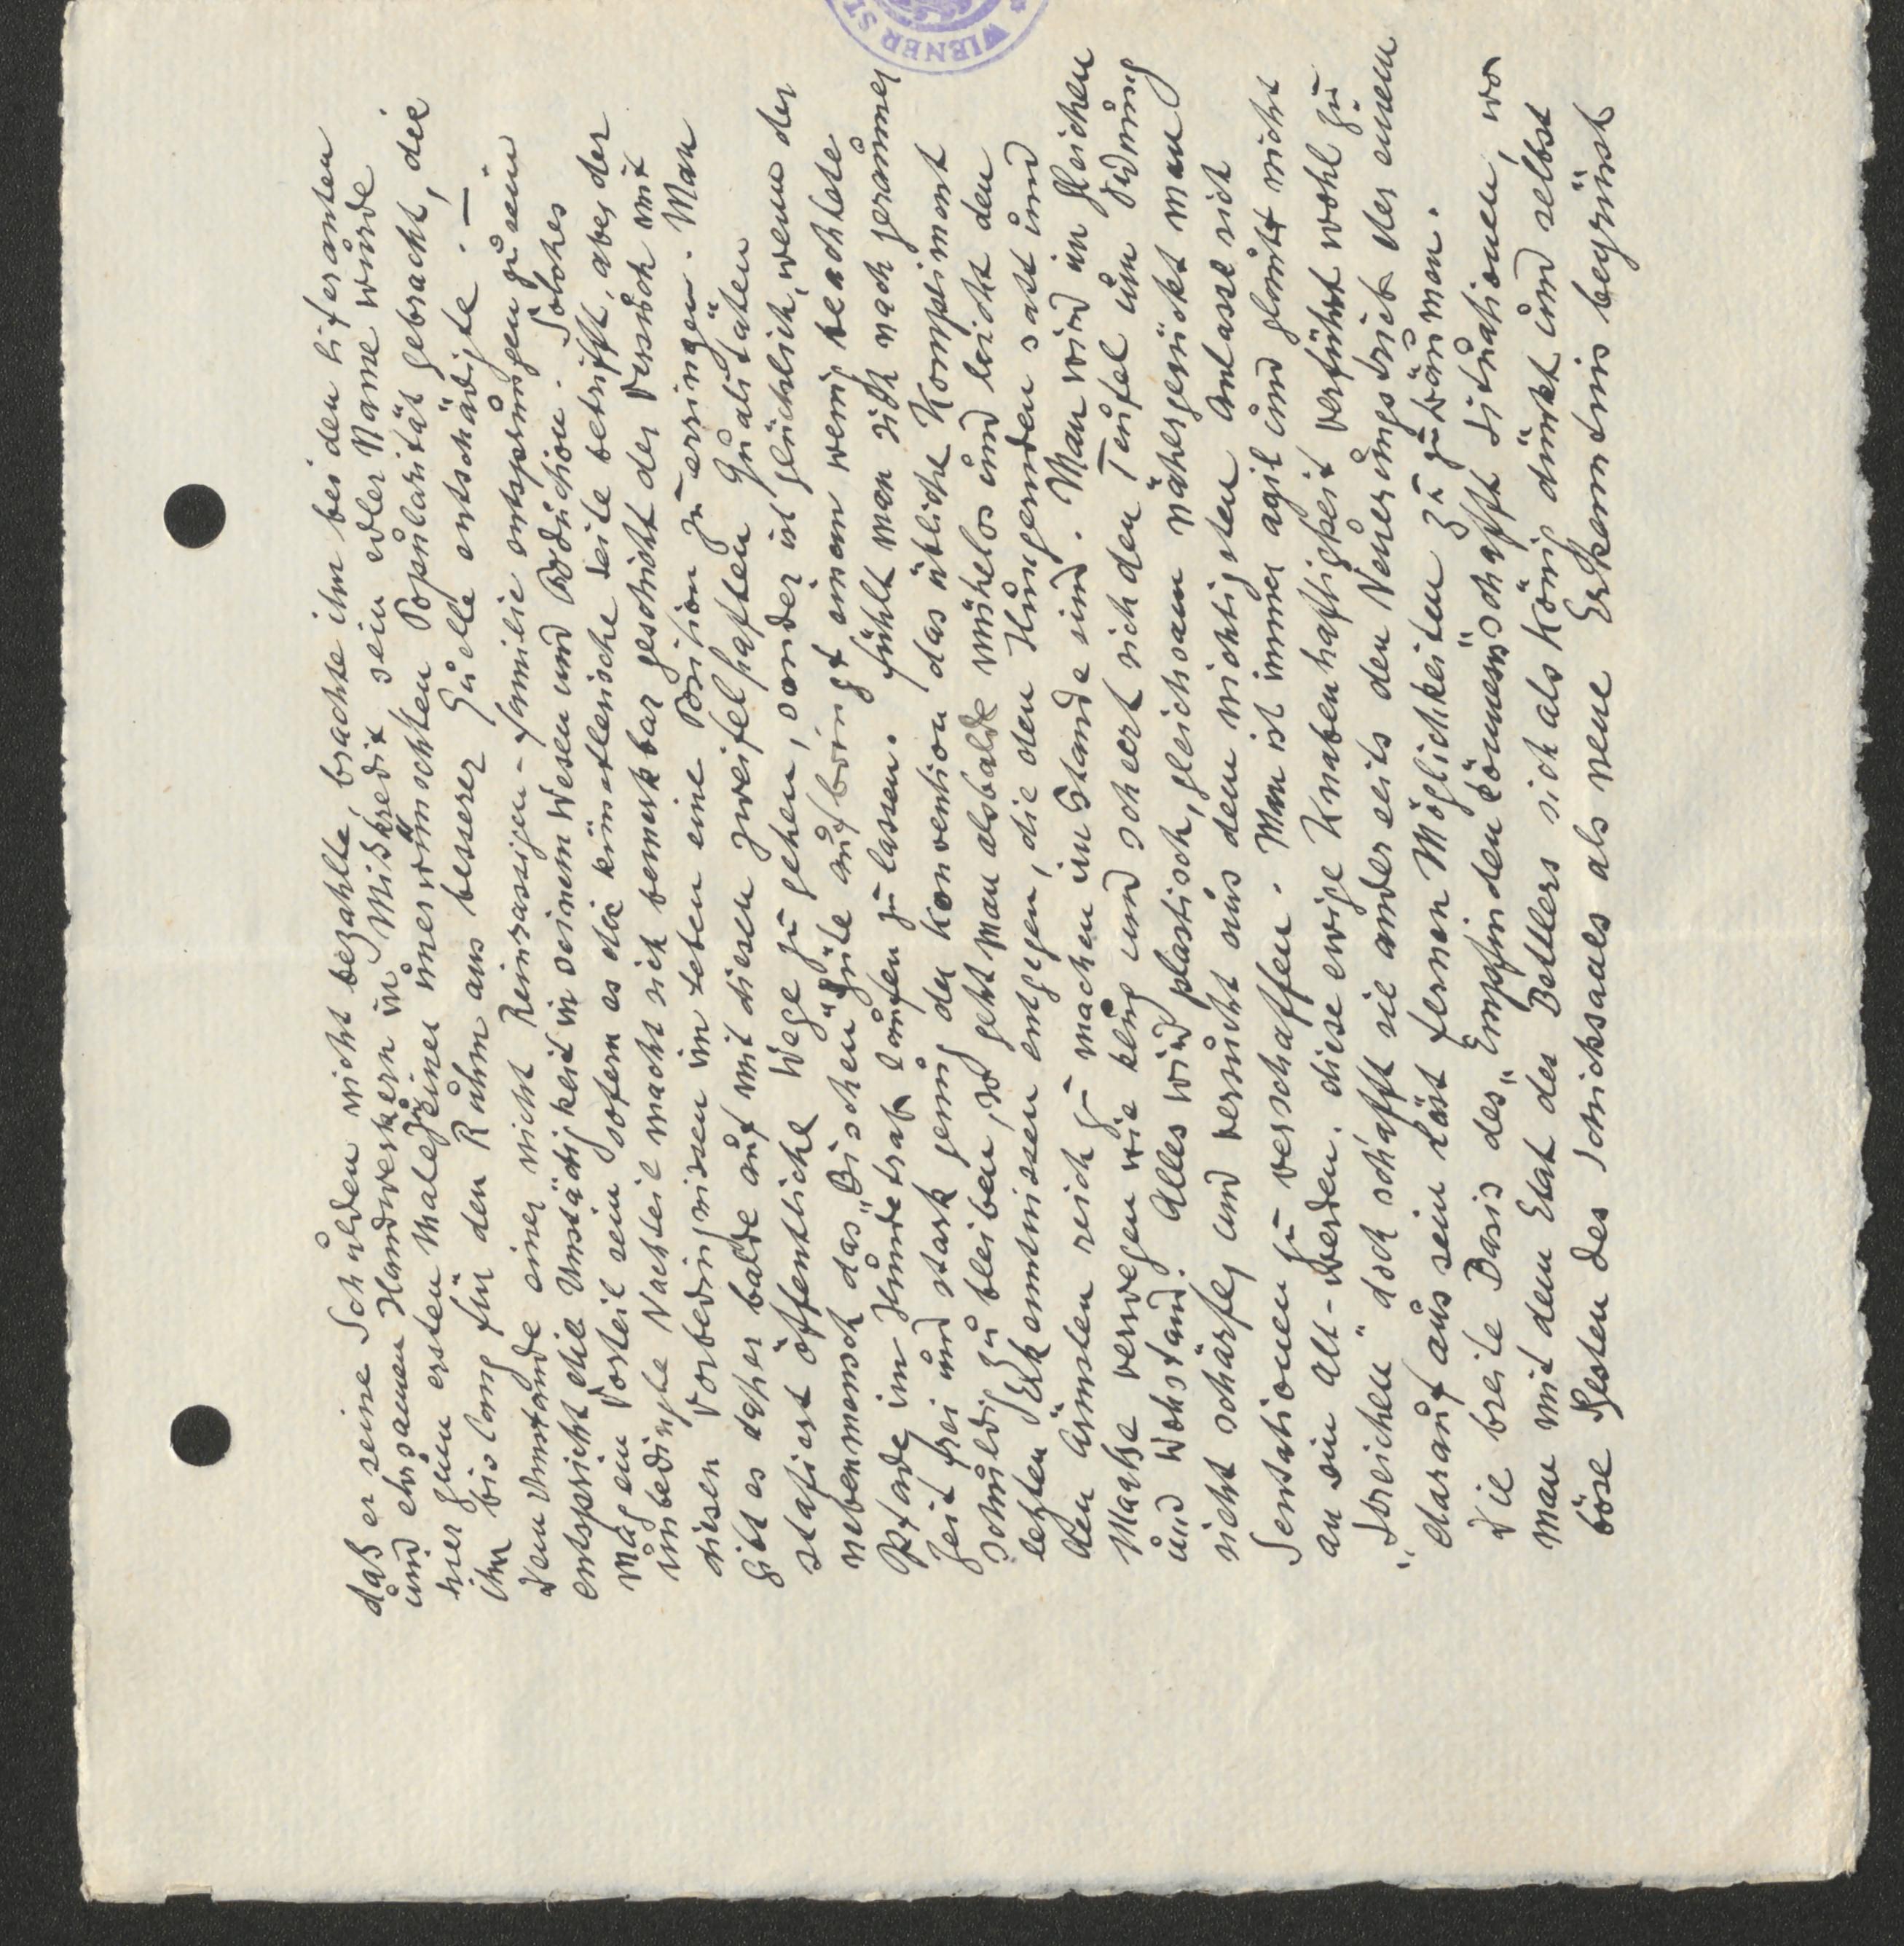 daß er seine Schulden nicht bezahlte, brachte ihn bei den Liferanten
und ehrsamen Handwerkern in Mißkredit sein edler Name wurde
hier zum ersten Male in einer unerwünschten Popularität gebracht, die
ihn bislang für den Ruhm aus besserer Quelle entschädigte. —
Dem Umstande einer nicht Reinrassigen-familie entsprungen zu sein
entspricht die Unstätigkeit in seinem Wesen und Produktion. Solches
mag ein Vorteil sein sofern es die künstlerische Seite betrifft, aber der
unbedingte Nachteil macht sich bemerkbar geschieht der Versuch mit
diesen Vorbedingnissen im Leben eine Position zu erringen. Man
gibt es daher balde auf mit diesen zweifelhaften Qualitäten
stafiert öffentliche Wege zu gehen, sonder ist glücklich, wenn der
nebenmensch das „Bischen" güte aufbringt einem wenig beachtete
Pfade im Hundetrab laufen zu lassen. Fühlt man sich nach geraumer
Zeit frei und stark genug der Konvention das übliche Kompliment
schuldig zu bleiben, so geht man alsbalde mühelos und leicht den
letzten Erkenntnissen entgegen, die den Hungernden satt und
den Ärmsten reich zu machen im Stande sind. Man wird im gleichen
Maasse verwegen wie klug und schert sich den Teufel um Ordnung
und Wohstand. Alles wird plastisch, gleichsam nähergerückt man
sieht schärfer und versucht aus dem nichtigsten Anlasse sich
Sensationen zu verschaffen. Man ist immer agil und glaubt nicht
an ein alt-werden. diese ewige Knabenhaftigkeit verführt wohl zu
„Streichen" doch schafft sie anderseits den Neuerungstrieb der einem
darauf aus sein läst fernen Möglichkeiten zu zuträumen.
Die breite Basis des „Empfinden können's" schafft Situationen, wo
man mit dem Etat des Bettlers sich als König dünkt und selbst
böse Gesten des Schicksaales als neue Erkenntnis begrüsst
WIENER ST